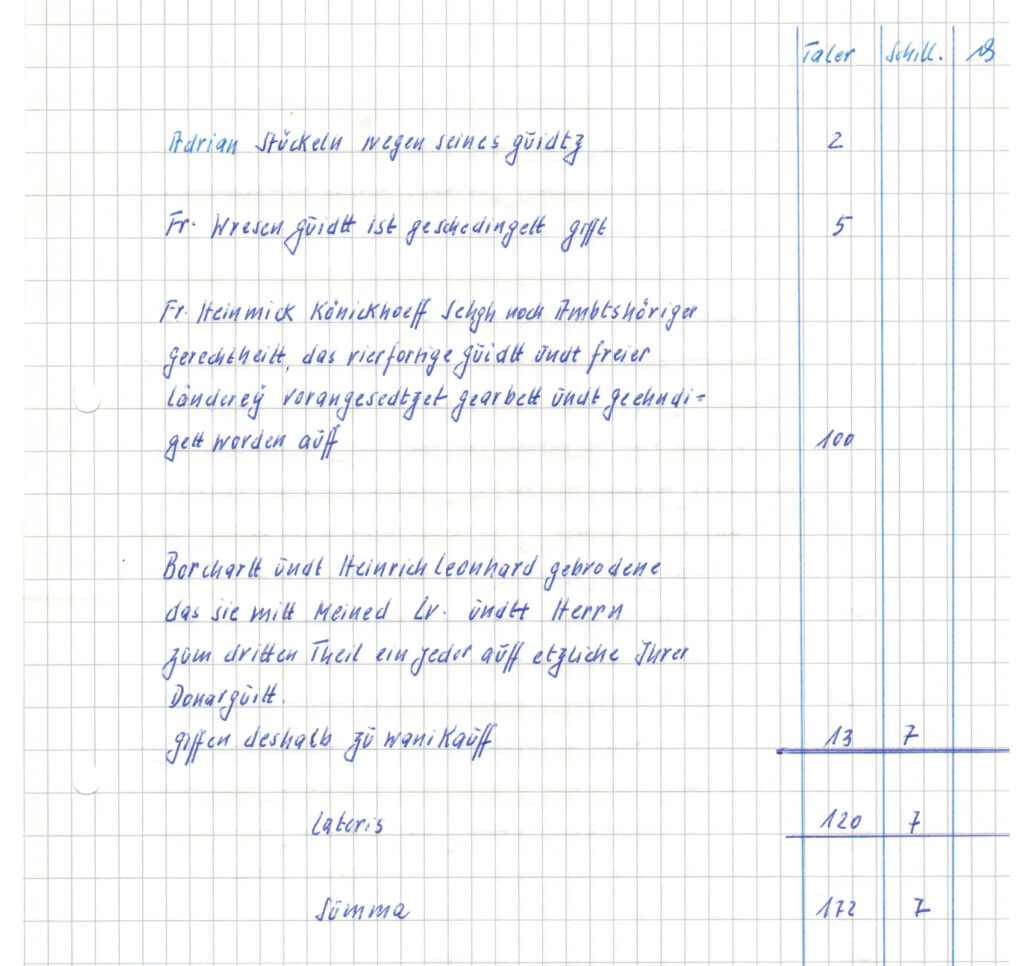 Taler Schill. ₰
Adrian Stückeln wegen seines güidtz 2
Fr. Wresen güidtt ist geschedingett gifft 5
Fr. Heinrnick Könickhoeff Sehgh noch Ambtshöriger
gerechtheitt, das vierfortige güidtt ündt freier
länderey vorangesedtzet gearbett ündt geehndi=
gett worden aüff 100
Borchartt ündt Heinrich Leonhard gebrodene
das sie mitt Meined Lv. ündtt Herrn
züm dritten Theil ein jeder aüff etzliche Ihrer
Donargüitt.
giffen deshalb zü wanikaüff 13 7
Lateris 120 7
Sümma 172 7